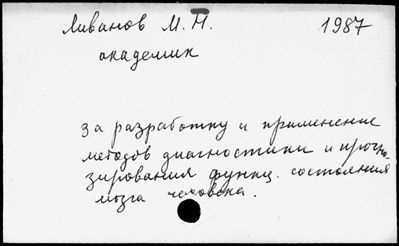 Ливанов М. Н. 1987
академик
за разработку и применение
методов диагностики и прогно-
зирования функц. состояния
мозга человека.